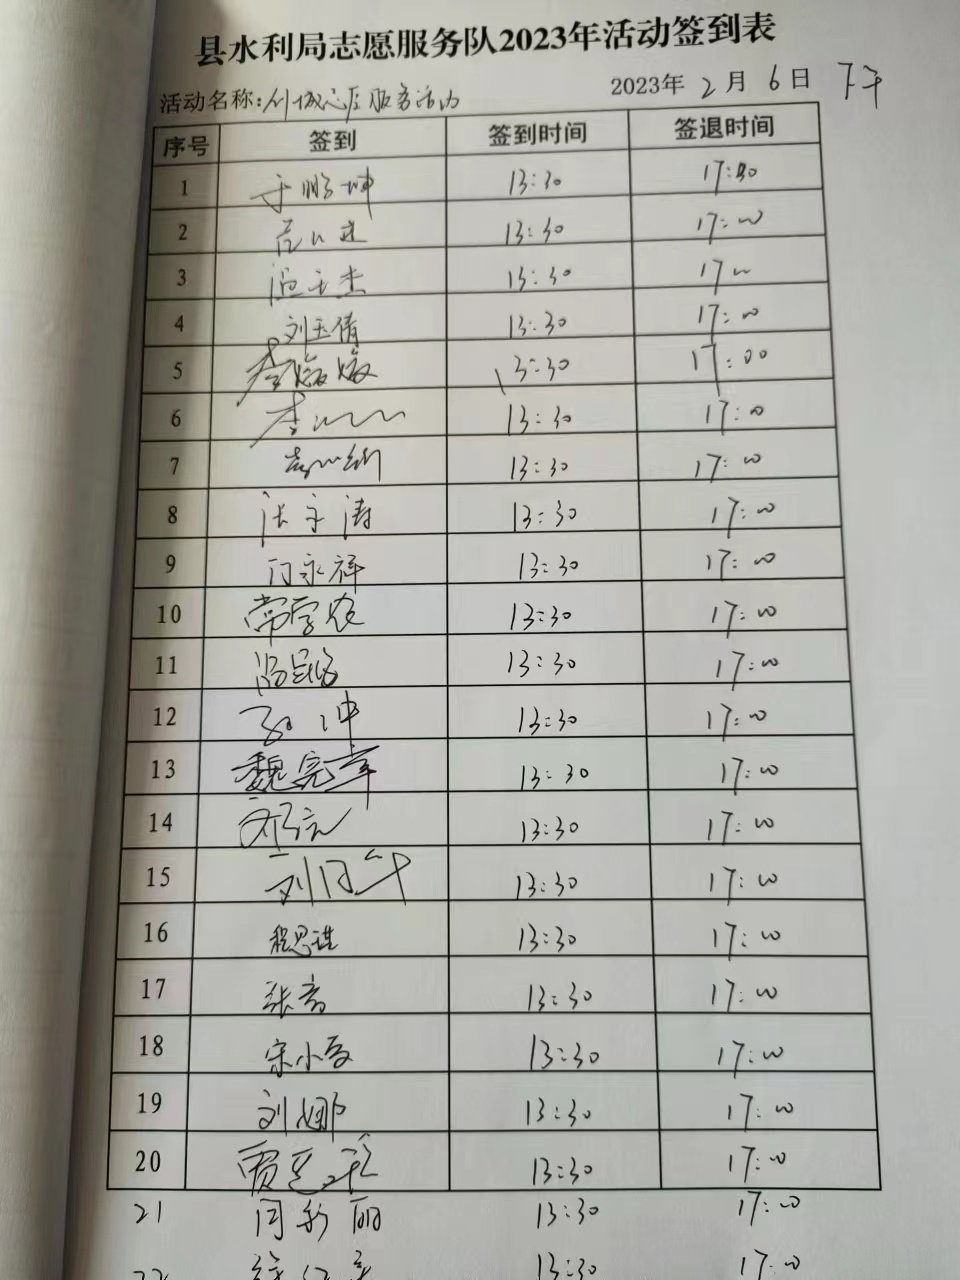 县水利局志愿服务队2023年活动签到表
活动名称:创城志愿服务活动 2023年2月6日 下午
序号 签到 签到时间 签退时间
1 于鹏坤 13:30 17:30
2 13:30 17:00
3 温玉杰 13:30 17 00
4 刘玉倩 13:30 17:00
5 李媛媛 13:30 17:00
6 李 13:30 17:00
7 13:30 17:00
8 张守涛 13:30 17:00
9 闫永祥 13:30 17:00
10 常学农 13:30 17:00
11 13:30 17:00
12 孙冲 13:30 17:00
13 魏宪章 13:30 17:00
14 邓 13:30 17:00
15 刘同年 13:30 17:00
16 程思雅 13:30 17:00
17 张 13:30 17:00
18 宋小 13:30 17:00
19 刘娜 13:30 17:00
20 贾 13:30 17:00
21 闫彩丽 13:30 17:00
22 徐红 13:30 17:00